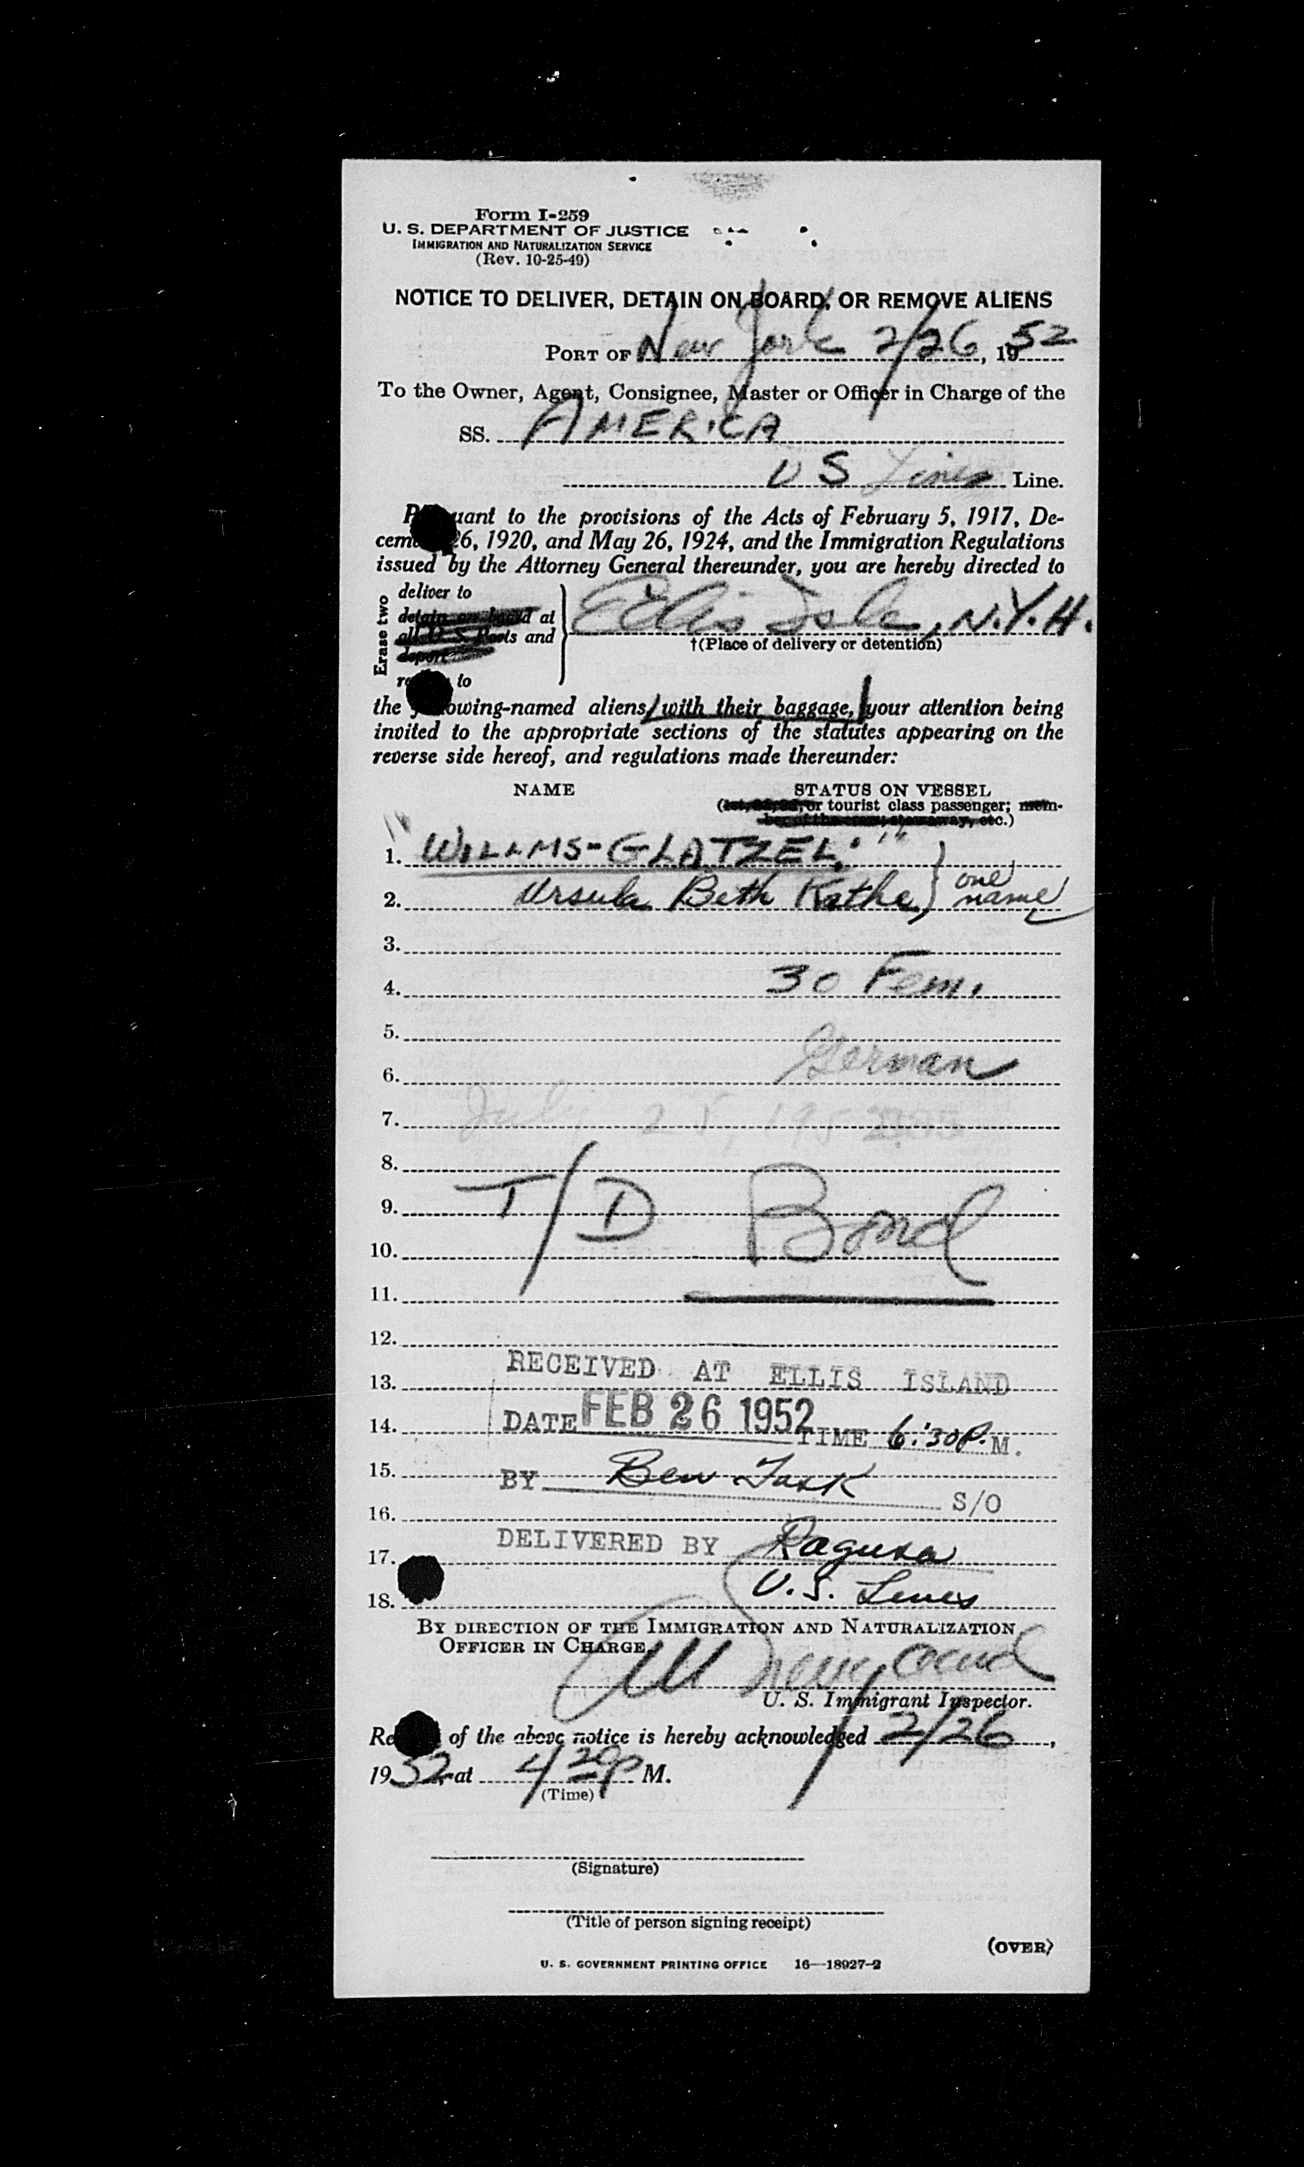 Form I-259
U. S. DEPARTMENT OF JUSTICE
IMMIGRATION AND NATURALIZATION SERVICE
(Rev. 10-25-49)
NOTICE TO DELIVER, DETAIN ON BOARD, OR REMOVE ALIENS
PORT OF New York 2/26, 1952
To the Owner, Agent, Consignee, Master or Officer in Charge of the
SS. AMERICA
US Lines Line.
uant to the provisions of the Acts of February 5, 1917, De-
cem 26, 1920, and May 26, 1924, and the Immigration Regulations
issued by the Attorney General thereunder, you are hereby directed to
Erase two
deliver to
detain on board at
all U. S. Ports and
deport
to
Ellis Isle, N.Y.H.
†(Place of delivery or detention)
the owing-named aliens, with their baggage, your attention being
invited to the appropriate sections of the statutes appearing on the
reverse side hereof, and regulations made thereunder:
NAME STATUS ON VESSEL
or tourist class passenger; mem-
etc.)
1. "WILLMS-GLATZEL,"
2. Ursula Beth Kathe, } one name
3.
4. 30 Fem.
5.
6. German
7. July 25, 195
8.
9. T/D Bond
10.
11.
12.
13. RECEIVED AT ELLIS ISLAND
14. DATE FEB 26 1952 TIME 6:30 P.M.
15. BY Ben S/O
16.
17. DELIVERED BY Ragusa
18. U.S. Lines
BY DIRECTION OF THE IMMIGRATION AND NATURALIZATION
OFFICER IN CHARGE,
U. S. Immigrant Inspector.
Re of the above notice is hereby acknowledged 2/26,
1952 at 4/20 P M.
(Time)
(Signature)
(Title of person signing receipt)
(OVER)
U. S. GOVERNMENT PRINTING OFFICE 16—18927-2